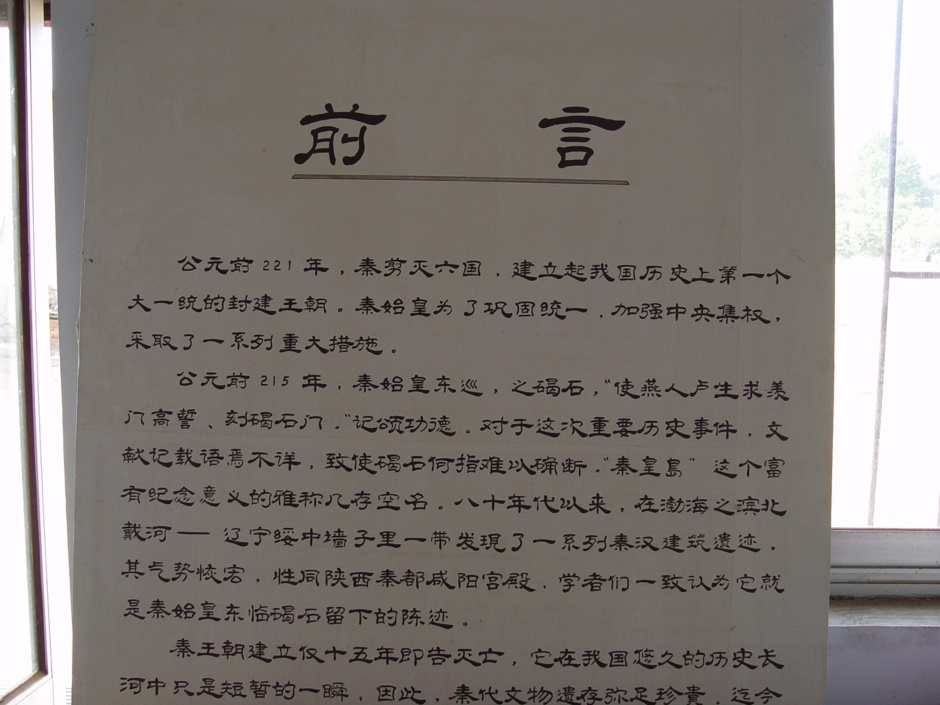 前 言
公元前221年，秦剪灭六国，建立起我国历史上第一个
大一统的封建王朝。秦始皇为了巩固统一，加强中央集权，
采取了一系列重大措施。
公元前215年，秦始皇东巡，之碣石，“使燕人卢生求羡
门高誓、刻碣石门。”记颂功德。对于这次重要历史事件，文
献记载语焉不详，致使碣石何指难以确断，“秦皇島”这个富
有纪念意义的雅称几存空名。八十年代以来，在渤海之滨北
戴河——辽宁绥中墙子里一带发現了一系列秦汉建筑遗迹，
其气势恢宏，性同陕西秦都咸阳宫殿，学者们一致认为它就
是秦始皇东临碣石留下的陈迹。
秦王朝建立仅十五年即告灭亡，它在我国悠久的历史长
河中只是短暂的一瞬，因此，秦代文物遗存弥足珍貴，迄今